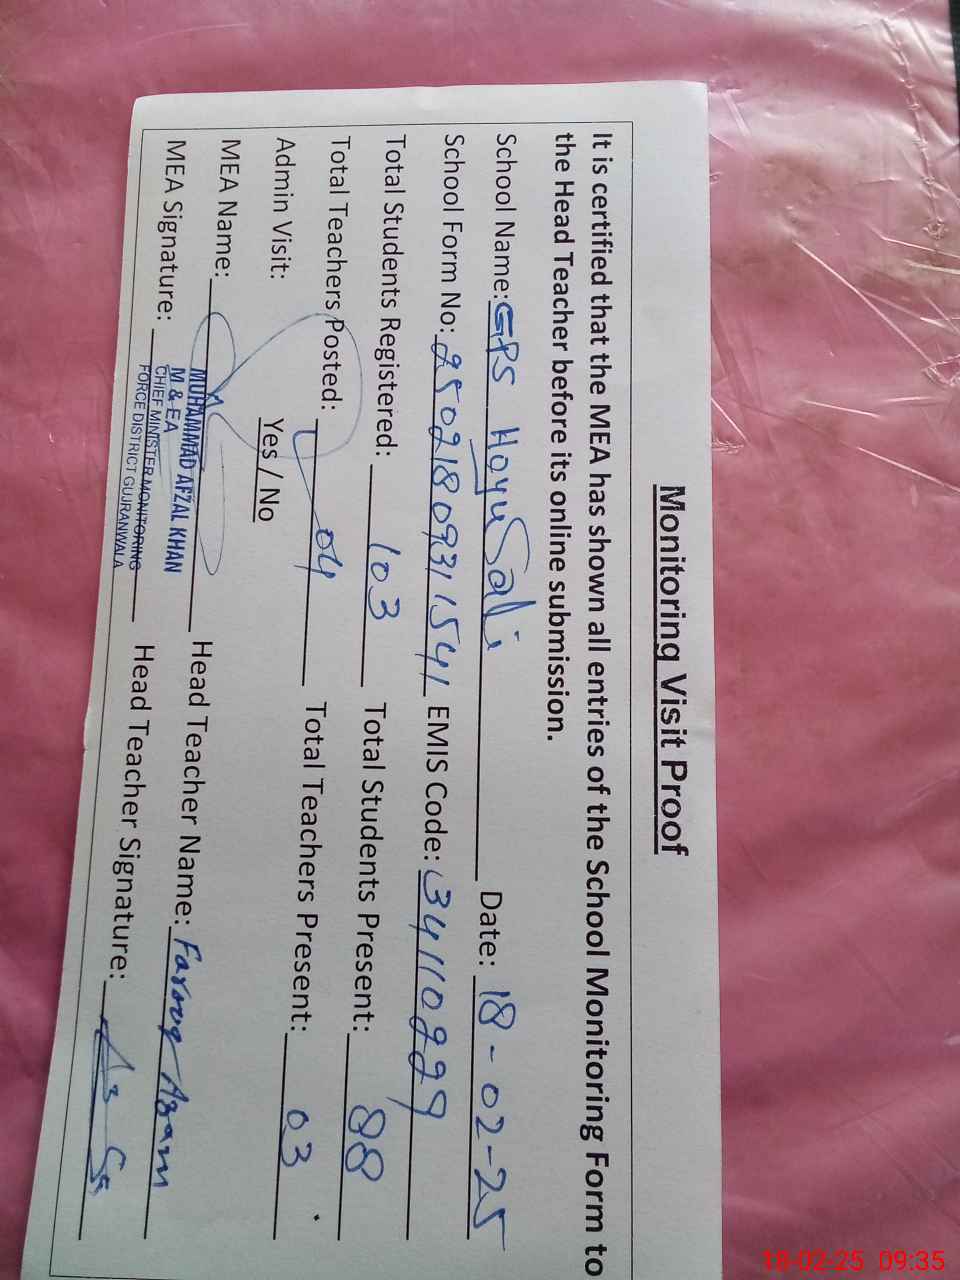 Monitoring Visit Proof
It is certified that the MEA has shown all entries of the School Monitoring Form to
the Head Teacher before its online submission.
School Name: GPS Hoyu Sali Date: 18-02-25
School Form No: 25021809311541 EMIS Code: 34110229
Total Students Registered: 103 Total Students Present: 88
Total Teachers Posted: 04 Total Teachers Present: 03
Admin Visit: Yes / No
MEA Name: Head Teacher Name: Farooq Azam
MEA Signature: Head Teacher Signature:
MUHAMMAD AFZAL KHAN
M & EA
CHIEF MINISTER MONITORING
FORCE DISTRICT GUJRANWALA
18-02-25 09:35